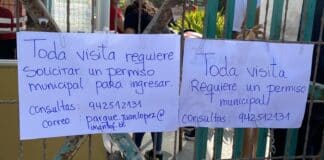 Toda visita requiere
Solicitar un permiso
municipal para ingresar.
consultas: 942512131
correo: parque.juanlopez@
Toda visita
Requiere un permiso
municipal
consultas: 942512131